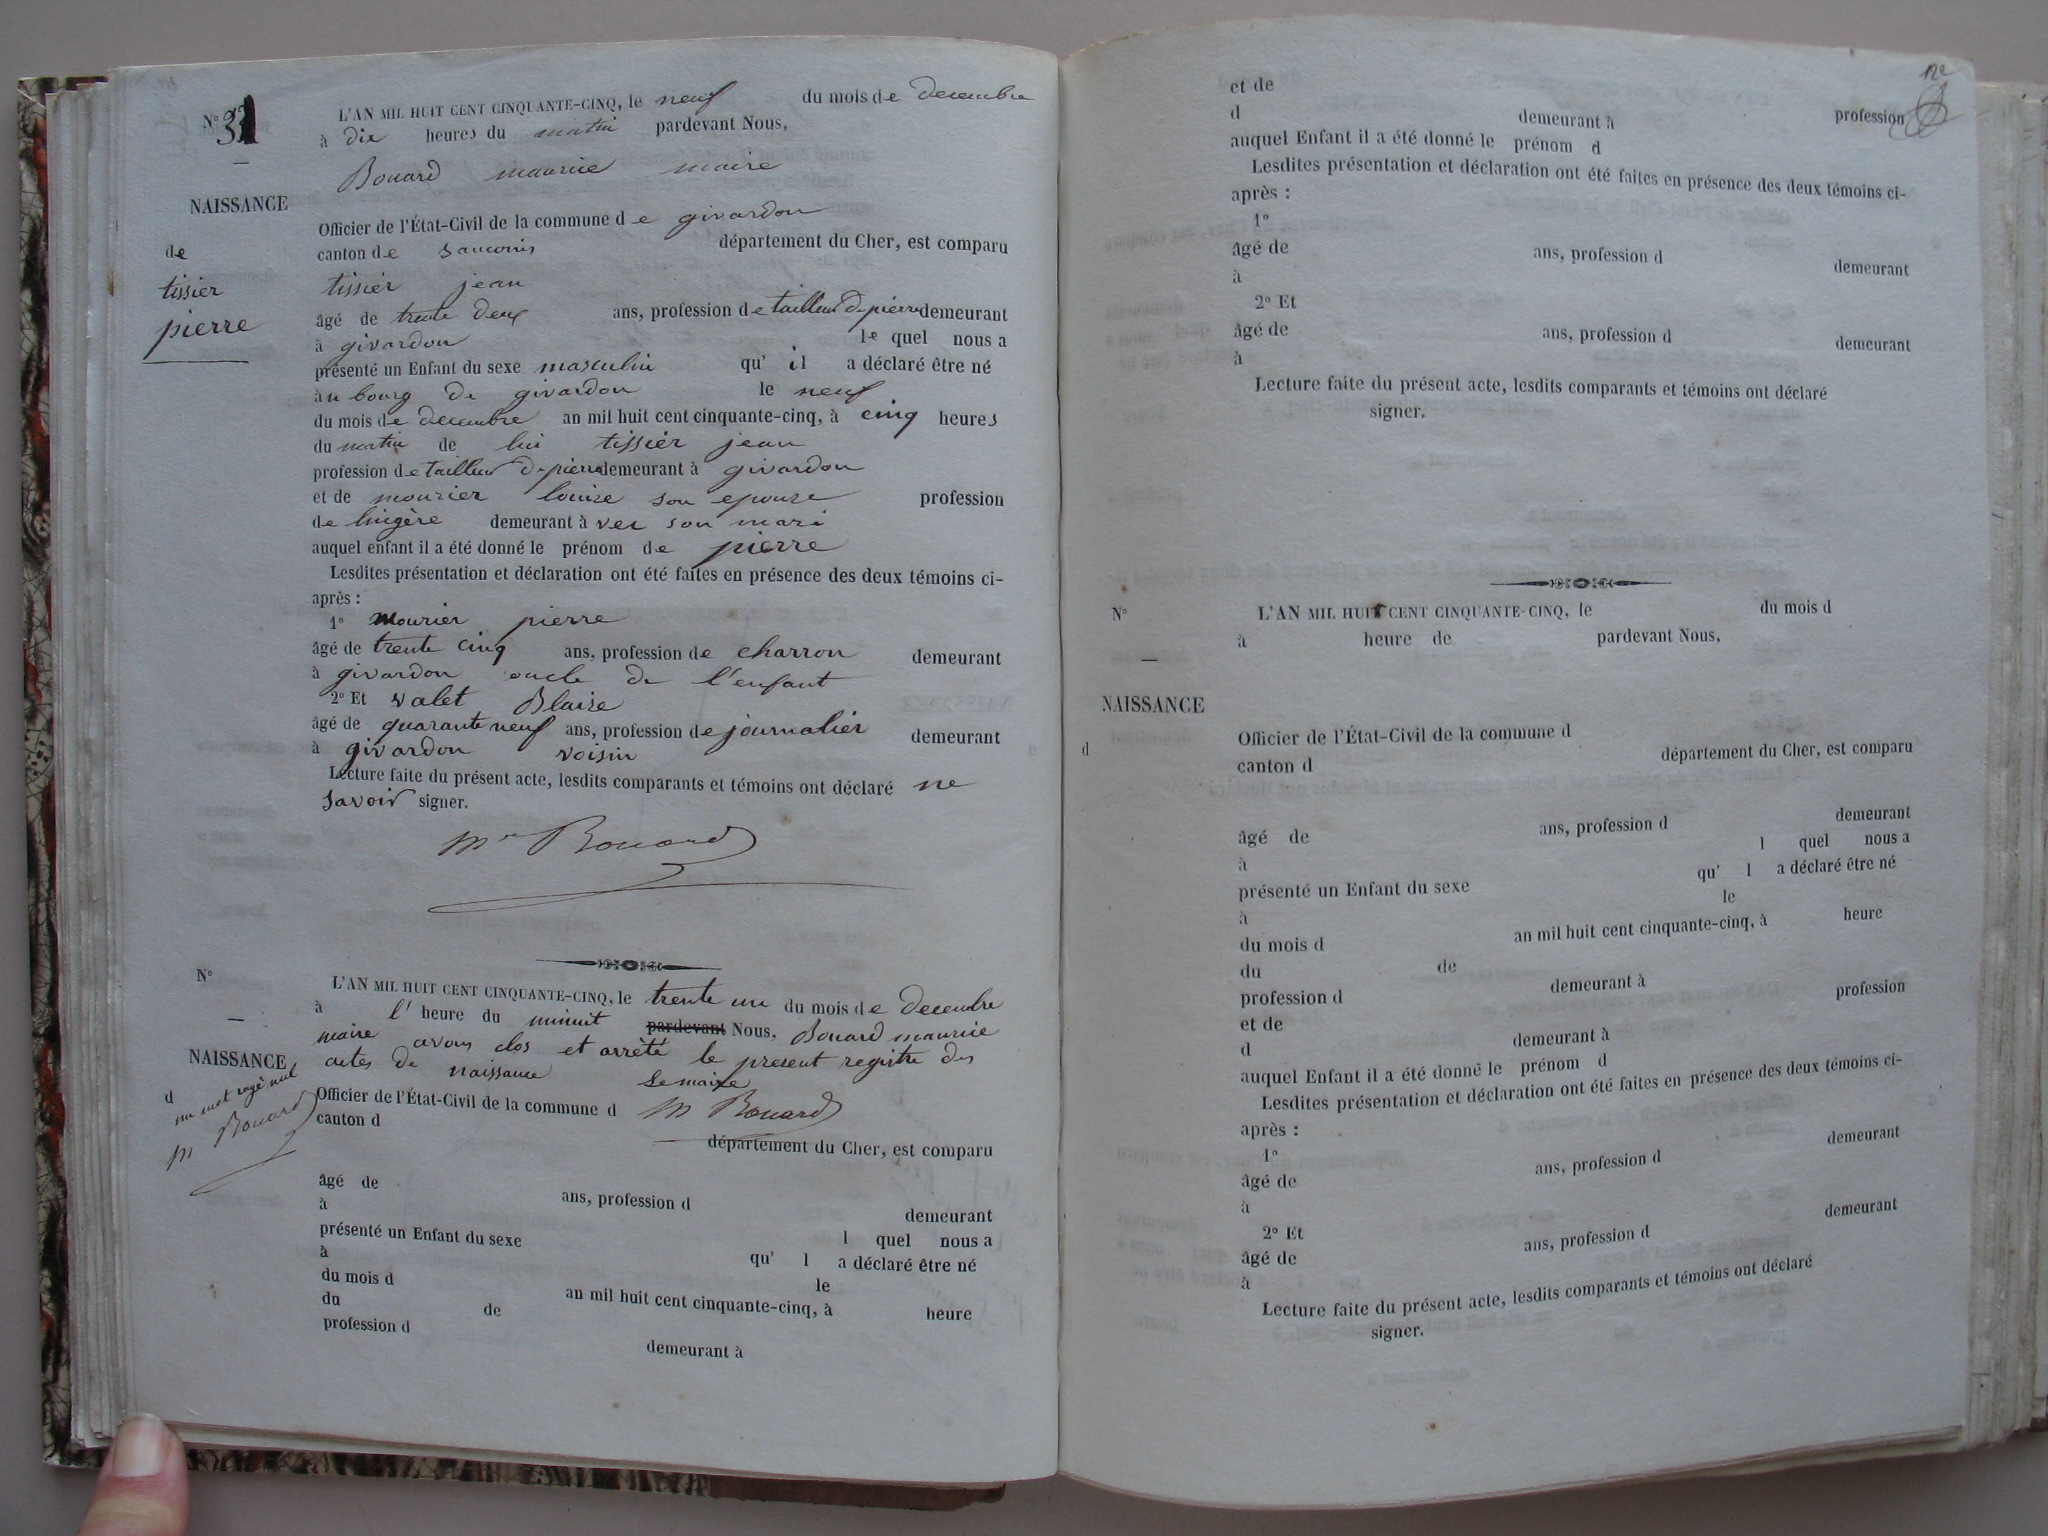 N° 31
L'AN MIL HUIT CENT CINQUANTE-CINQ, le neuf du mois de decembre
à dix heures du matin pardevant Nous,
Bouard maurice maire
NAISSANCE
Officier de l'État-Civil de la commune de givardon
canton de sancoins département du Cher, est comparu
de
tissier
pierre
tissier jean
âgé de trente deux ans, profession de tailleur de pierre demeurant
à givardon le quel nous a
présenté un Enfant du sexe masculin qu' il a déclaré être né
au bourg de givardon le neuf
du mois de decembre an mil huit cent cinquante-cinq, à cinq heures
du matin de lui tissier jean
profession de tailleur de pierre demeurant à givardon
et de mourier louise son epouse profession
de lingère demeurant à vec son mari
auquel enfant il a été donné le prénom de pierre
Lesdites présentation et déclaration ont été faites en présence des deux témoins ci-
après :
1° mourier pierre
âgé de trente cinq ans, profession de charron demeurant
à givardon oncle de l'enfant
2° Et valet Blaise
âgé de quarante neuf ans, profession de journalier demeurant
à givardon voisin
Lecture faite du présent acte, lesdits comparants et témoins ont déclaré ne
savoir signer.
Mce Bouard
N°
L'AN MIL HUIT CENT CINQUANTE-CINQ, le trente un du mois de decembre
à l' heure du minuit pardevant Nous, Bouard maurice
maire avons clos et arrêté le present registre des
NAISSANCE
actes de naissance le maire
d
un mot rayé nul
M Bouard
Officier de l'État-Civil de la commune d M Bouard
canton d
département du Cher, est comparu
âgé de ans, profession d demeurant
à l quel nous a
présenté un Enfant du sexe qu' l a déclaré être né
à le
du mois d an mil huit cent cinquante-cinq, à heure
du de
profession d demeurant à
et de
d demeurant à profession
auquel Enfant il a été donné le prénom d
Lesdites présentation et déclaration ont été faites en présence des deux témoins ci-
après :
1°
âgé de ans, profession d demeurant
à
2° Et
âgé de ans, profession d demeurant
à
Lecture faite du présent acte, lesdits comparants et témoins ont déclaré
signer.
N°
L'AN MIL HUIT CENT CINQUANTE-CINQ, le du mois d
à heure de pardevant Nous,
NAISSANCE
d
Officier de l'État-Civil de la commune d
canton d département du Cher, est comparu
âgé de ans, profession d demeurant
à l quel nous a
présenté un Enfant du sexe qu' l a déclaré être né
à le
du mois d an mil huit cent cinquante-cinq, à heure
du de
profession d demeurant à
et de profession
d demeurant à
auquel Enfant il a été donné le prénom d
Lesdites présentation et déclaration ont été faites en présence des deux témoins ci-
après :
1°
âgé de ans, profession d demeurant
à
2° Et
âgé de ans, profession d demeurant
à
Lecture faite du présent acte, lesdits comparants et témoins ont déclaré
signer.